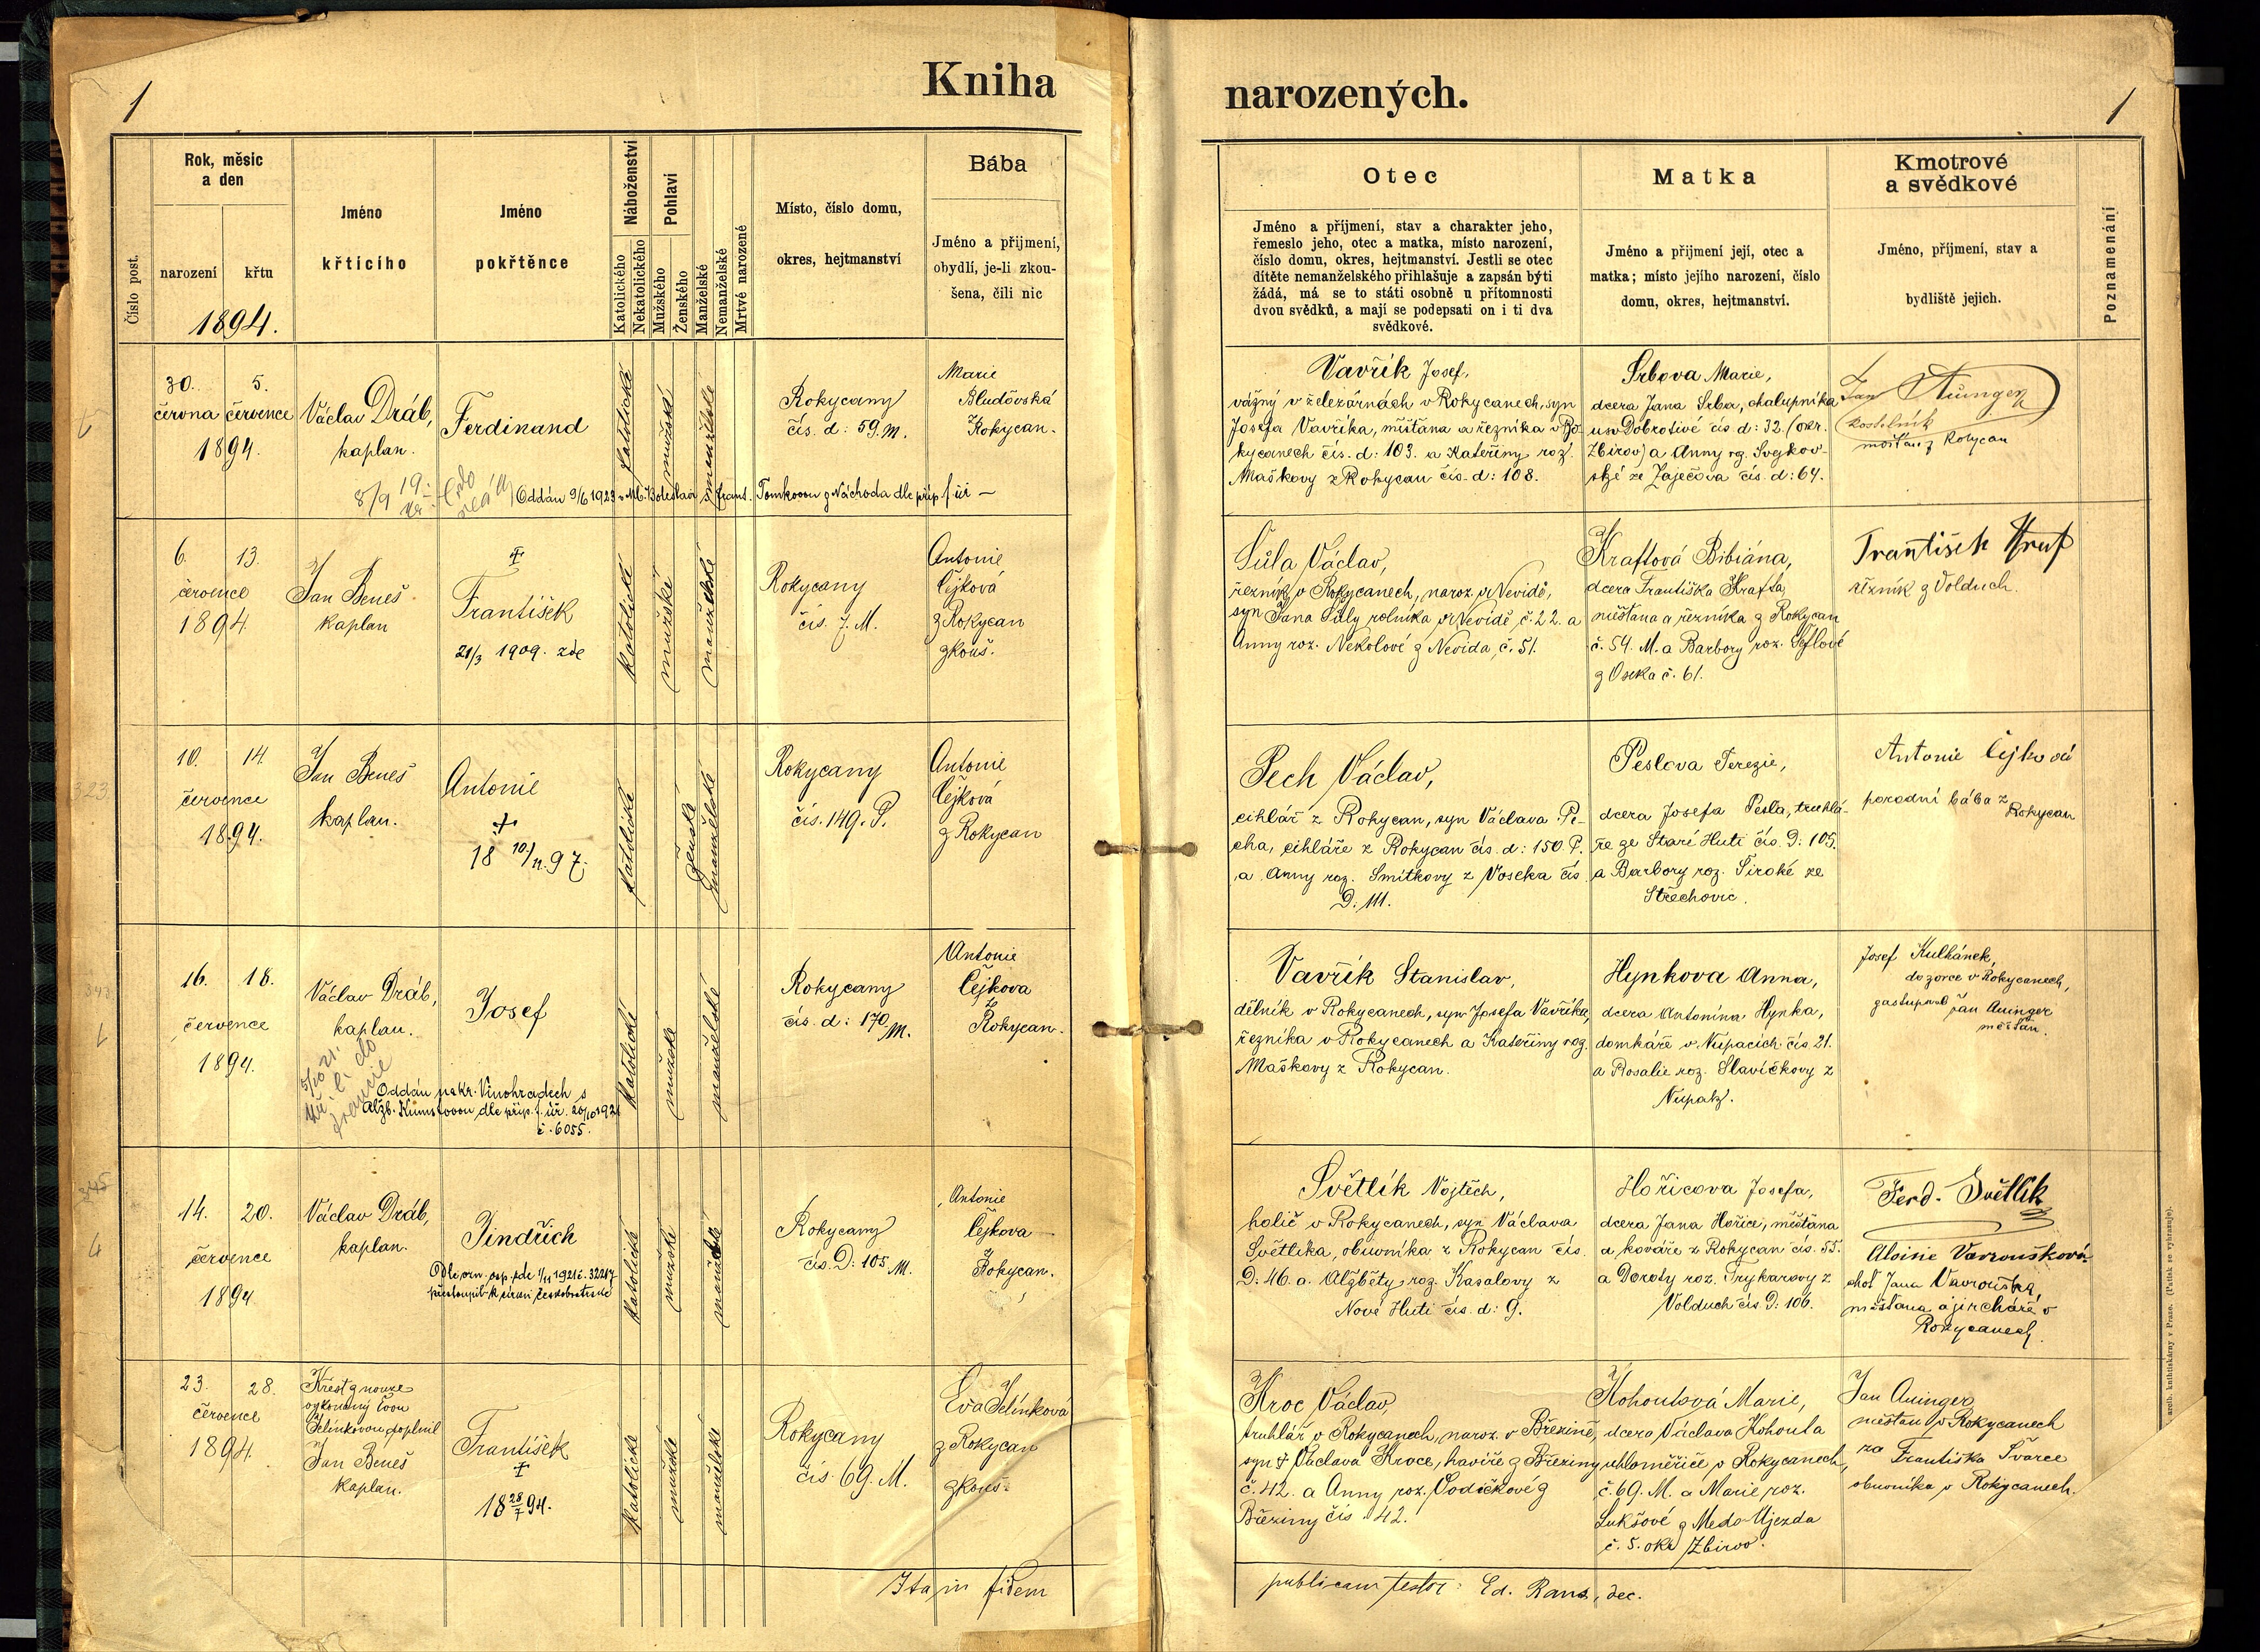 1
Kniha
narozených.
1
Číslo post.
Rok, měsíc
a den
narození
křtu
1894.
Jméno
křtícího
Jméno
pokřtěnce
Náboženství
Katolického
Nekatolického
Pohlaví
Mužského
Ženského
Manželské
Nemanželské
Mrtvé narozené
Místo, číslo domu,
okres, hejtmanství
Bába
Jméno a přijmení,
obydlí, je-li zkou-
šena, čili nic
Otec
Jméno a příjmení, stav a charakter jeho,
řemeslo jeho, otec a matka, místo narození,
číslo domu, okres, hejtmanství. Jestli se otec
dítěte nemanželského přihlašuje a zapsán býti
žádá, má se to státi osobně u přítomnosti
dvou svědků, a mají se podepsati on i ti dva
svědkové.
Matka
Jméno a přijmení její, otec a
matka; místo jejího narození, číslo
domu, okres, hejtmanství.
Kmotrové
a svědkové
Jméno, příjmení, stav a
bydliště jejich.
Poznamenání
30. 5.
června července
1894.
Václav Dráb,
kaplan.
Ferdinand
Oddán 9/6 1923 v Ml. Boleslavi s Frant. Tomkovou z Náchoda dle příp. f. úř.
katolické
mužské
manželské
Rokycany
čís. d: 59. M.
Marie
Bludovská
Rokycan.
Vavřík Josef,
vážný v železárnách v Rokycanech, syn
Josefa Vavříka, měšťana a řezníka v Ro-
kycanech čís. d: 103. a Kateřiny roz.
Maškovy z Rokycan čís. d: 108.
Srbova Marie,
dcera Jana Srba, chalupníka
u sv. Dobrotivé čís. d: 32. (okr.
Zbirov) a Anny rz. Svejkov-
ské ze Zaječova čís. d: 64.
Jan Auinger
kostelník
měšťan z Rokycan
6. 13.
července
1894.
Jan Beneš
kaplan
†
František
21/3 1909. zde
katolické
mužské
manželské
Rokycany
čís. 7. M.
Antonie
Čejková
z Rokycan
zkouš.
Šůla Václav,
řezník v Rokycanech, naroz. v Nevidě,
syn Jana Šůly rolníka v Nevidě č. 22. a
Anny roz. Nekolové z Nevida, č. 51.
Kraftová Bibiána,
dcera Františka Krafta,
měšťana a řezníka z Rokycan
č. 54. M. a Barbory roz. Šeflové
z Oseka č. 61.
František Kraft
řezník z Volduch.
323.
10. 14.
července
1894.
Jan Beneš
kaplan.
Antonie
†
18 10/11. 97.
katolické
ženské
manželské
Rokycany
čís. 149. P.
Antonie
Čejková
z Rokycan
Pech Václav,
cihlář z Rokycan, syn Václava Pe-
cha, cihláře z Rokycan čís. d: 150. P.
a Anny roz. Smítkovy z Voseka čís.
D: 111.
Peslova Terezie,
dcera Josefa Pesla, truhlá-
ře ze Staré Huti čís. D: 105.
a Barbory roz. Široké ze
Střechovic.
Antonie Čejková
porodní bába z
Rokycan
16. 18.
července
1894.
Václav Dráb,
kaplan.
Josef
Oddán na Kr. Vinohradech s
Alžb. Kunstovou dle příp. f. úř. 20/10 1921
č. 6055.
katolické
mužské
manželské
Rokycany
čís. d: 170 M.
Antonie
Čejkova
z
Rokycan.
Vavřík Stanislav,
dělník v Rokycanech, syn Josefa Vavříka,
řezníka v Rokycanech a Kateřiny roz.
Maškovy z Rokycan.
Hynkova Anna,
dcera Antonína Hynka,
domkáře v Nupacích čís. 21.
a Rosalie roz. Slavíčkovy z
Nupak.
Josef Kulhánek,
dozorce v Rokycanech,
zastupoval Jan Auinger
měšťan.
345
14. 20.
července
1894
Václav Dráb,
kaplan.
Jindřich
Dle ozn. osp. zde 1/11 1921 č. 32217
přestoupil k církvi Českobratrské
katolické
mužské
manželské
Rokycany
čís. D: 105 M.
Antonie
Čejkova
z
Rokycan.
Světlík Vojtěch,
holič v Rokycanech, syn Václava
Světlíka, obuvníka z Rokycan čís.
D: 46. a. Alžběty roz. Kasalovy z
Nové Huti čís. d: 9.
Hořicova Josefa,
dcera Jana Hořice, měšťana
a kováře z Rokycan čís. 55.
a Doroty roz. Trykarovy z
Volduch čís. D: 106.
Ferd. Světlík
Aloisie Vavroušková
choť Jana Vavrouška,
měšťana a jircháře v
Rokycanech.
23. 28.
července
1894.
Křest z nouze
vykonaný Evou
Jelínkovou doplnil
Jan Beneš
kaplan.
František
†
18 28/7 94.
katolické
mužské
manželské
Rokycany
čís. 69. M.
Eva Jelínková
z Rokycan
zkouš.
Kroc Václav,
truhlář v Rokycanech, naroz. v Březině,
syn † Václava Kroce, havíře z Březiny
č. 42. a Anny roz. Vodičkové z
Březiny čís. 42.
Kohoutová Marie,
dcera Václava Kohouta
uhloměřiče v Rokycanech,
č. 69. M. a Marie roz.
Lukšové z Medo-Újezda
č. 5. okr. Zbirov.
Jan Auinger
měšťan v Rokycanech
za Františka Švarce
obuvníka v Rokycanech.
Ita in fidem
publicam testor: Ed. Rans, dec.